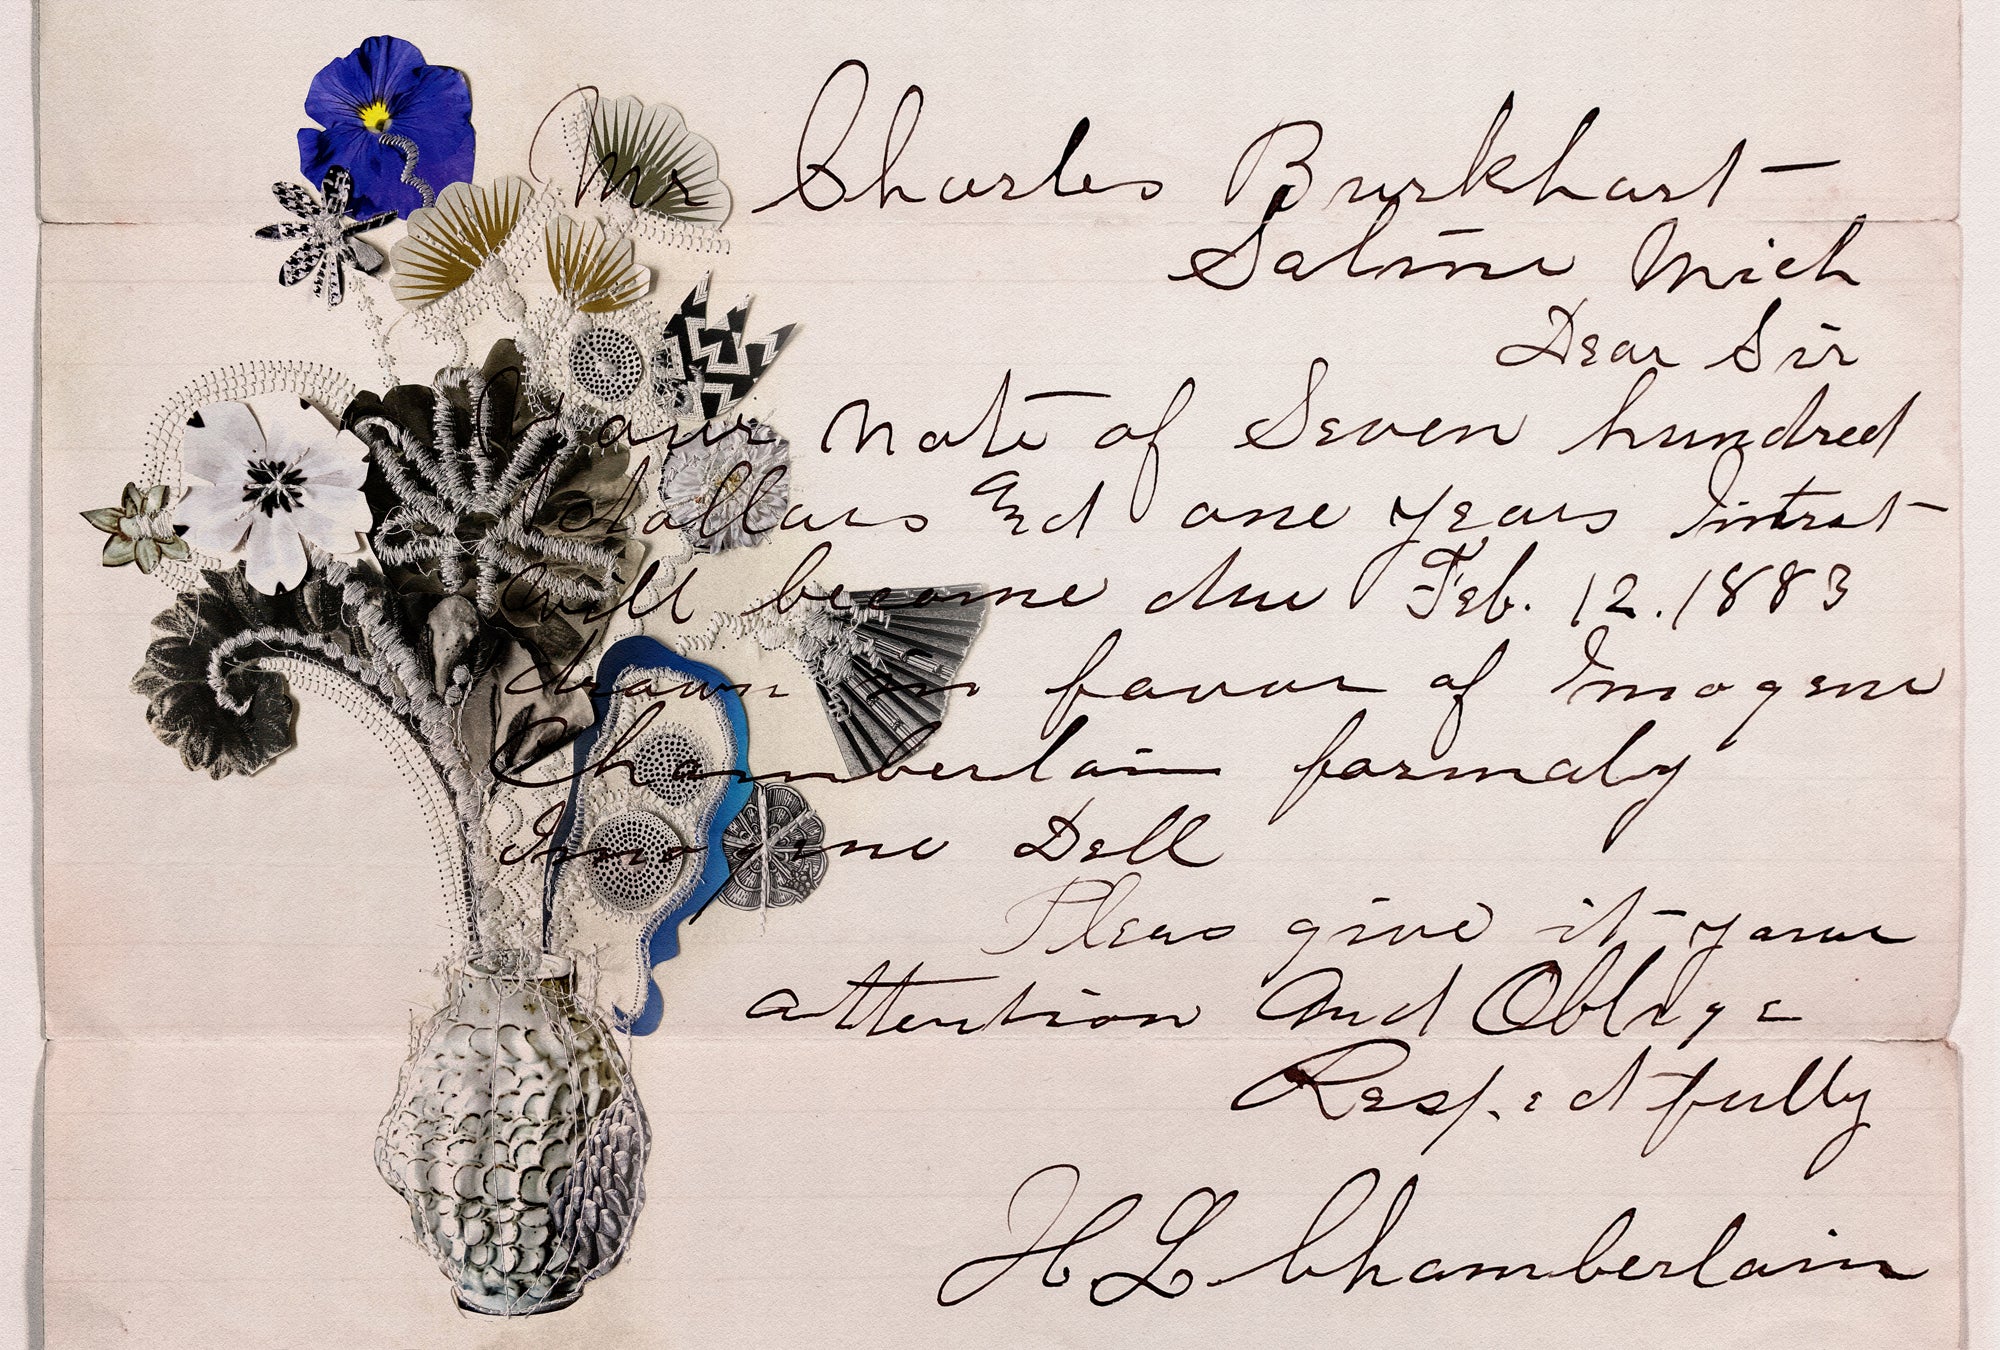 Mr Charles Burkhart
Saline Mich
Dear Sir
Your note of Seven hundred
dollars and one years Intrest
will become due Feb. 12. 1883
drawn in favor of Imogene
Chamberlain formaly
Imogene Dell
Pleas give it your
attention and Oblige
Respectfully
H L Chamberlain